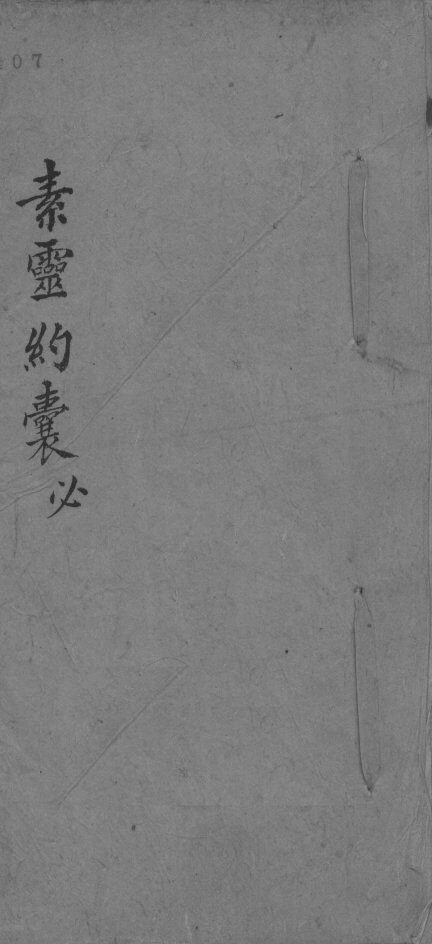 07
素靈約囊必